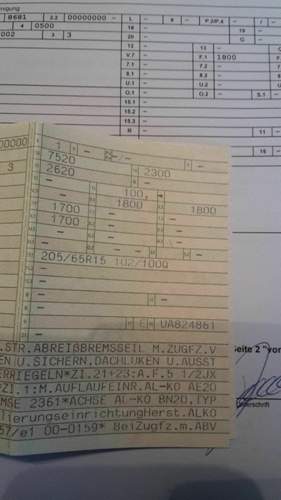 nigung
8681 2.2 00000000 - L - 9 - P.3/P.4 - / -
4 0500 18 - 19 -
002 3 3 20 - G -
12 - 13 -
V.7 - F.1 1800
7.1 - 7.2 -
8.1 - 8.2 -
U.1 - U.2 -
O.1 - O.2 - S.1 -
15.1 -
15.2 -
15.3 -
R - 11 -
00000 1 -
- -/-
7520 2300
3 2620 -
- 100,
- 1800 1800
1700 -
1700 -
- -
-
205/65R15 102/100Q
-
-
-
- E UA824861
-
.STR.ABREIßBREMSSEIL M.ZUGFZ.V
EN U.SICHERN,DACHLUKEN U.AUSST
ERRIEGELN*ZI.21+23:A.F.5 1/2JX
*ZI.1:M.AUFLAUFEINR.AL-KO AE20
MSE 2361*ACHSE AL-KO BN20,TYP
lierungseinrichtungHerst.ALKO
57/e1 00-0159* BeiZugfz.m.ABV
16 -
Seite 2 "vor
terschrift